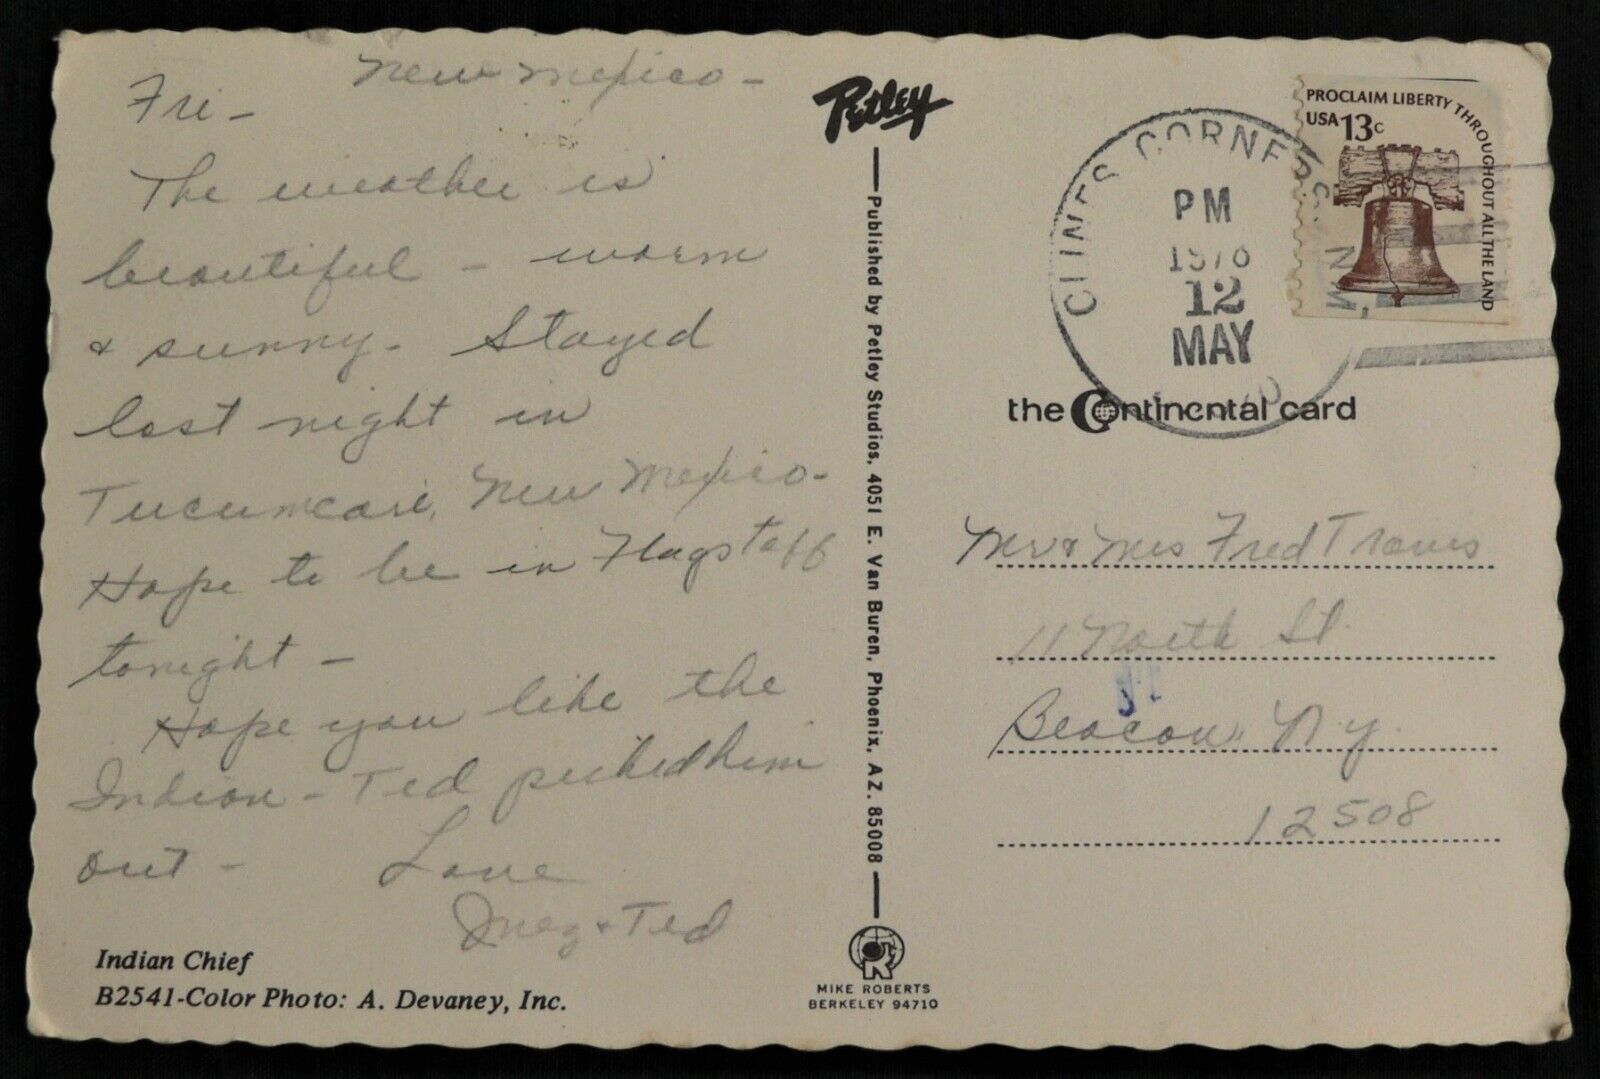 New Mexico -
Fri -
The weather is
beautiful - warm
& sunny - Stayed
last night in
Tucumcari, New Mexico -
Hope to be in Flagstaff
tonight -
Hope you like the
Indian - Ted picked him
out - Love
Inez & Ted
Indian Chief
B2541-Color Photo: A. Devaney, Inc.
Petley
Published by Petley Studios, 4051 E. Van Buren, Phoenix, AZ. 85008
MIKE ROBERTS
BERKELEY 94710
CLINES CORNERS, N.M.
PM
1978
12
MAY
PROCLAIM LIBERTY THROUGHOUT ALL THE LAND
USA 13c
the Continental card
Mr & Mrs Fred Travis
11 North St.
Beacon, N.Y.
12508